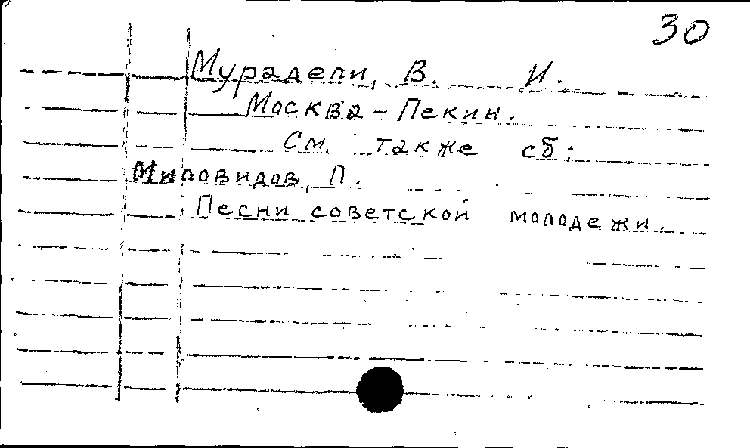 30
Мурадели, В. И.
Москва - Пекин.
См. также сб:
Миловидов, П.
Песни советской молодежи.